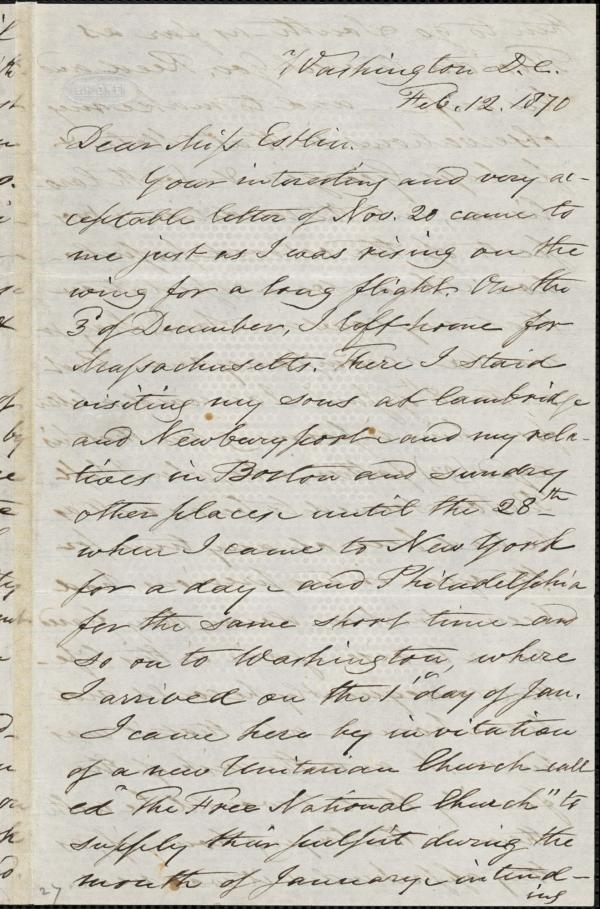 Washington D.C.
Feb. 12. 1870
Dear Miss Estlin.
Your interesting and very ac-
ceptable letter of Nov. 20 came to
me just as I was rising on the
wing for a long flight. On the
3d of December, I left home for
Massachusetts. There I staid
visiting my sons at Cambridge
and Newburyport and my rela-
tives in Boston and sundry
other places until the 28th
when I came to New York
for a day - and Philadelphia
for the same short time - and
so on to Washington, where
I arrived on the 1st day of Jan.
I came here by invitation
of a new Unitarian Church call
ed "The Free National Church" to
supply their pulpit during the
month of January, intend-
ing
27